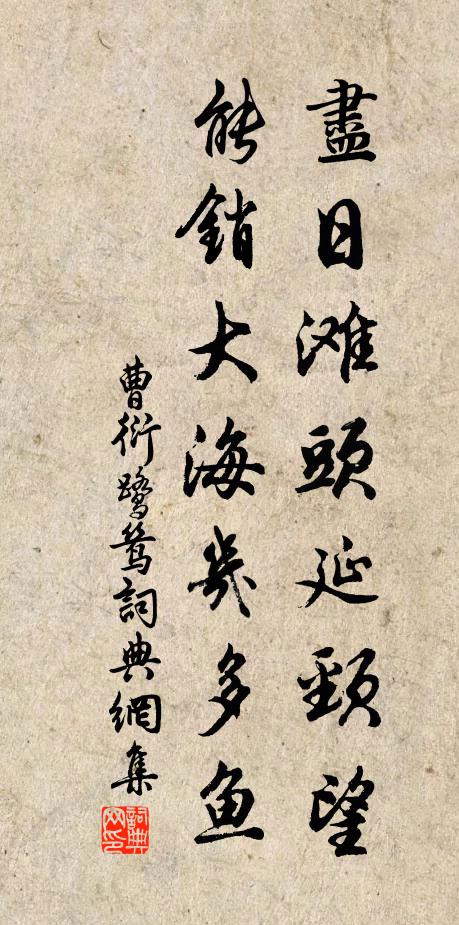 盡日滩頭延頸望
能銷大海幾多魚
曹衍鷺鶿詞典網集
詞典网印